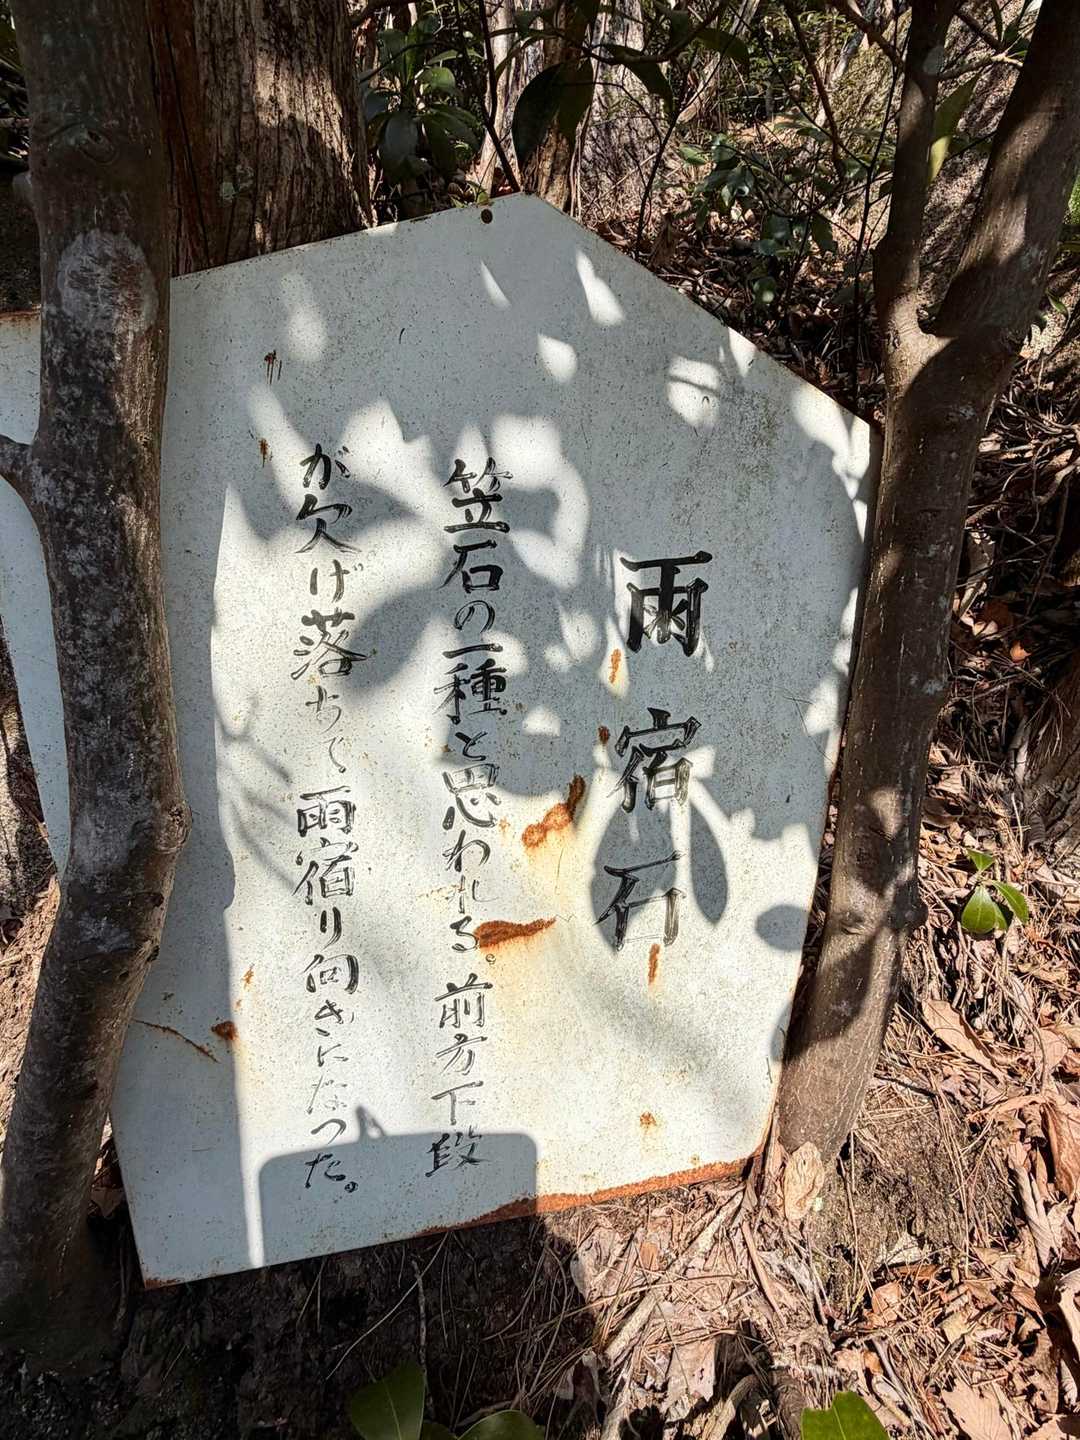 雨宿石
笠石の一種と思われる。前方下段
が欠げ落ちて雨宿り向きになった。